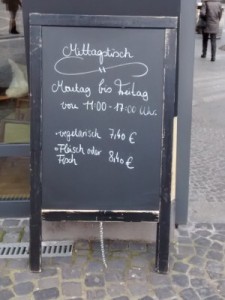 Mittagstisch
Montag bis Freitag
von 11:00-17:00 Uhr.
-vegetarisch 7,40 €
-Fleisch oder 8,40 €
Fisch